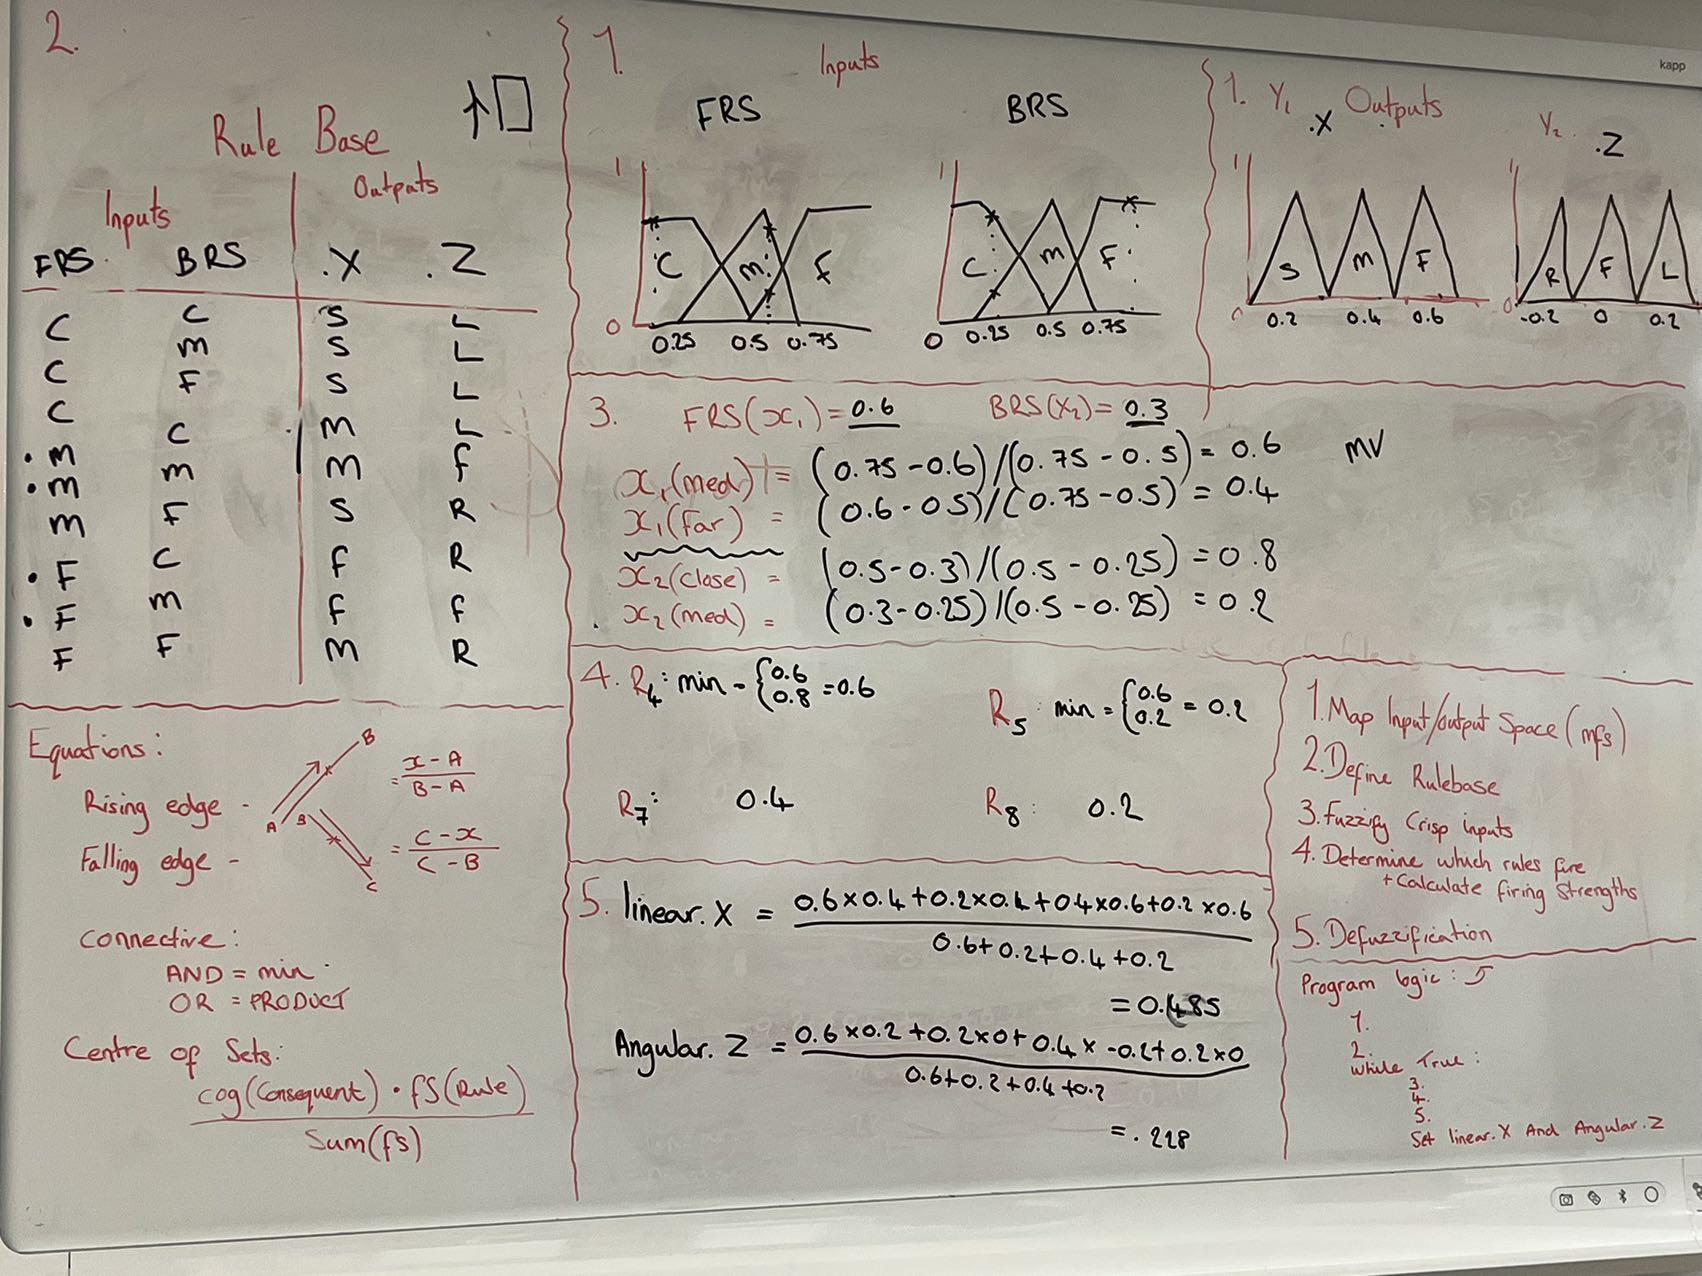 2.
Rule Base
Inputs Outputs
FRS BRS .X .Z
C C S L
C M S L
C F S L
.M C M L
.M M M F
M F S R
.F C F R
.F M F F
F F M R
Equations:
Rising edge - A B = x - A / B - A
Falling edge - B C = C - x / C - B
Connective:
AND = min
OR = PRODUCT
Centre of Sets:
cog(Consequent) . fS(Rule)
Sum(fs)
1. Inputs
FRS BRS
1 1
C M F C M F
0 0.25 0.5 0.75 0 0.25 0.5 0.75
1. Y1 .X Outputs Y2 .Z
1 1
S M F R F L
0 0.2 0.4 0.6 0 -0.2 0 0.2
3. FRS(x1) = 0.6 BRS(x2) = 0.3
x1(med) = (0.75 - 0.6)/(0.75 - 0.5) = 0.6 MV
x1(far) = (0.6 - 0.5)/(0.75 - 0.5) = 0.4
x2(close) = (0.5 - 0.3)/(0.5 - 0.25) = 0.8
x2(med) = (0.3 - 0.25)/(0.5 - 0.25) = 0.2
4. R4: min - {0.6 0.8 = 0.6
R5: min = {0.6 0.2 = 0.2
R7: 0.4 R8: 0.2
5. linear.X = 0.6 x 0.4 + 0.2 x 0.4 + 0.4 x 0.6 + 0.2 x 0.6
0.6 + 0.2 + 0.4 + 0.2
= 0.485
Angular.Z = 0.6 x 0.2 + 0.2 x 0 + 0.4 x -0.2 + 0.2 x 0
0.6 + 0.2 + 0.4 + 0.2
= .228
1. Map Input/output Space (mfs)
2. Define Rulebase
3. Fuzzify Crisp inputs
4. Determine which rules fire
+ Calculate firing Strengths
5. Defuzzification
Program logic:
1.
2.
While True:
3.
4.
5.
Set linear.X And Angular.Z
kapp